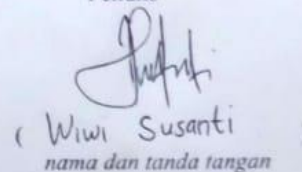 ( Wiwi Susanti
nama dan tanda tangan